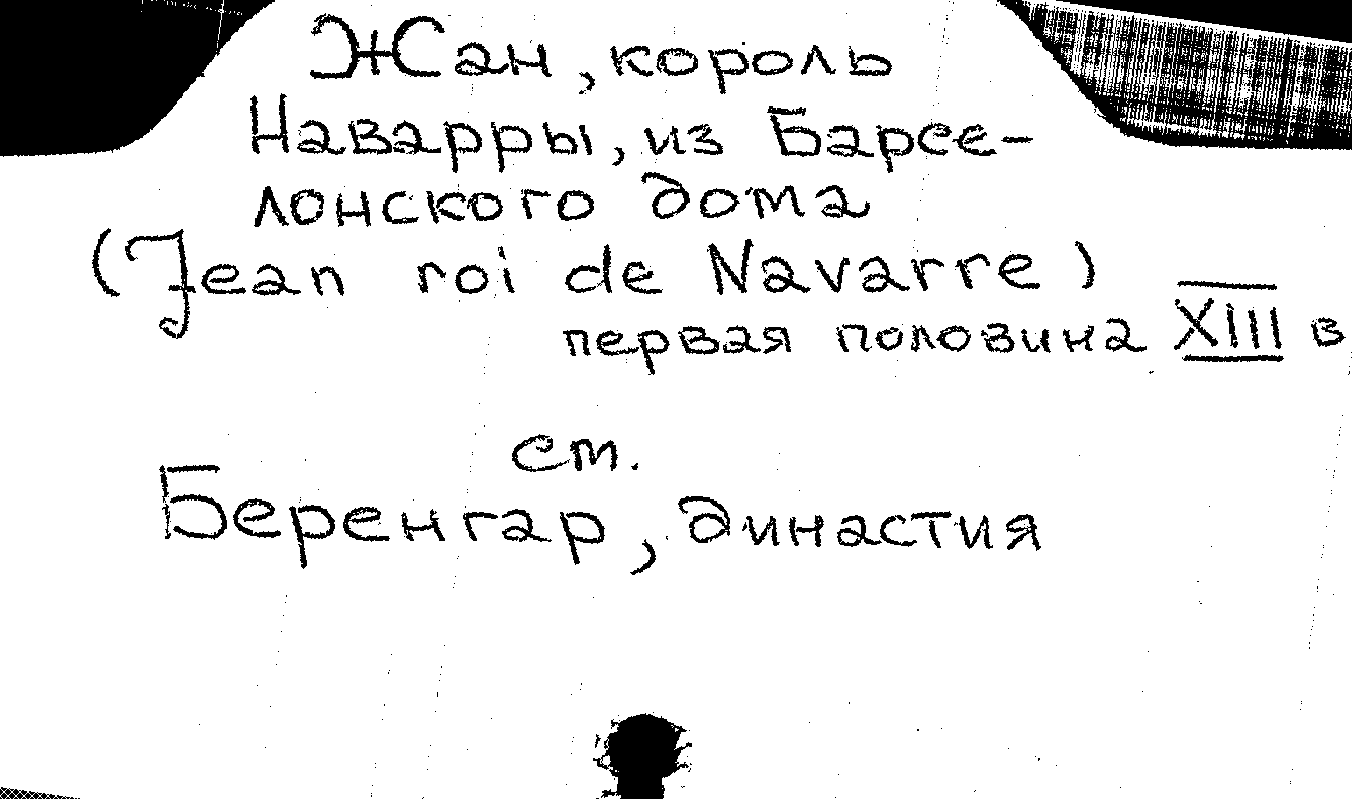 Жан, король
Наварры, из Барсе-
лонского дома
(Jean roi de Navarre)
первая половина XIII в
ст.
Беренгар, династия